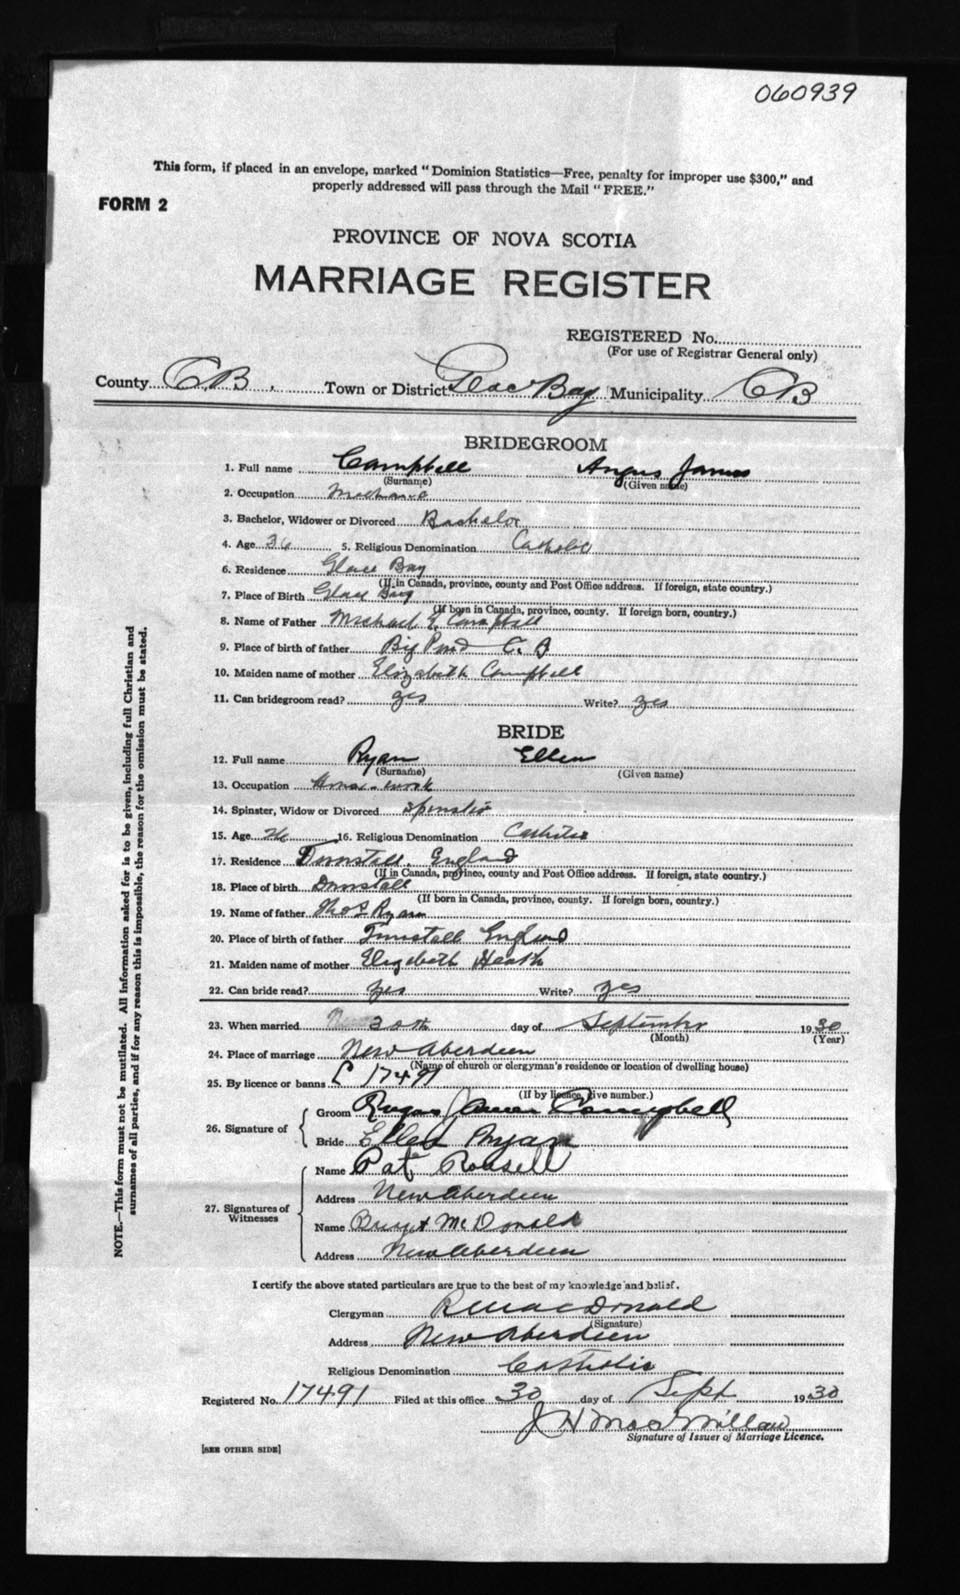 060939
This form, if placed in an envelope, marked "Dominion Statistics—Free, penalty for improper use $300," and
properly addressed will pass through the Mail "FREE."
FORM 2
PROVINCE OF NOVA SCOTIA
MARRIAGE REGISTER
REGISTERED No.
(For use of Registrar General only)
County C.B. Town or District Glace Bay Municipality CB
BRIDEGROOM
1. Full name Campbell Angus James
(Surname) (Given name)
2. Occupation Mechanic
3. Bachelor, Widower or Divorced Bachelor
4. Age 36 5. Religious Denomination Catholic
6. Residence Glace Bay
(If in Canada, province, county and Post Office address. If foreign, state country.)
7. Place of Birth Glace Bay
(If born in Canada, province, county. If foreign born, country.)
8. Name of Father Michael Campbell
9. Place of birth of father Big Pond C. B
10. Maiden name of mother Elizabeth Campbell
11. Can bridegroom read? yes Write? yes
BRIDE
12. Full name Ryan Ellen
(Surname) (Given name)
13. Occupation House-work
14. Spinster, Widow or Divorced Spinster
15. Age 16. Religious Denomination Catholic
17. Residence Tunstall, England
(If in Canada, province, county and Post Office address. If foreign, state country.)
18. Place of birth Tunstall
(If born in Canada, province, county. If foreign born, country.)
19. Name of father Thos Ryan
20. Place of birth of father Tunstall England
21. Maiden name of mother Elizabeth Heath
22. Can bride read? yes Write? yes
23. When married 30th day of September 1930
(Month) (Year)
24. Place of marriage New Aberdeen
(Name of church or clergyman's residence or location of dwelling house)
25. By licence or banns L 17491
(If by licence, give number.)
26. Signature of
Groom Angus James Campbell
Bride Ellen Ryan
27. Signatures of Witnesses
Name Pat Russell
Address New Aberdeen
Name McDonald
Address New Aberdeen
NOTE.—This form must not be mutilated. All information asked for is to be given, including full Christian and
surnames of all parties, and if for any reason this is impossible, the reason for the omission must be stated.
I certify the above stated particulars are true to the best of my knowledge and belief.
Clergyman MacDonald
(Signature)
Address New Aberdeen
Religious Denomination Catholic
Registered No. 17491 Filed at this office 30 day of Sept 1930
J H MacMillan
Signature of Issuer of Marriage Licence.
[SEE OTHER SIDE]